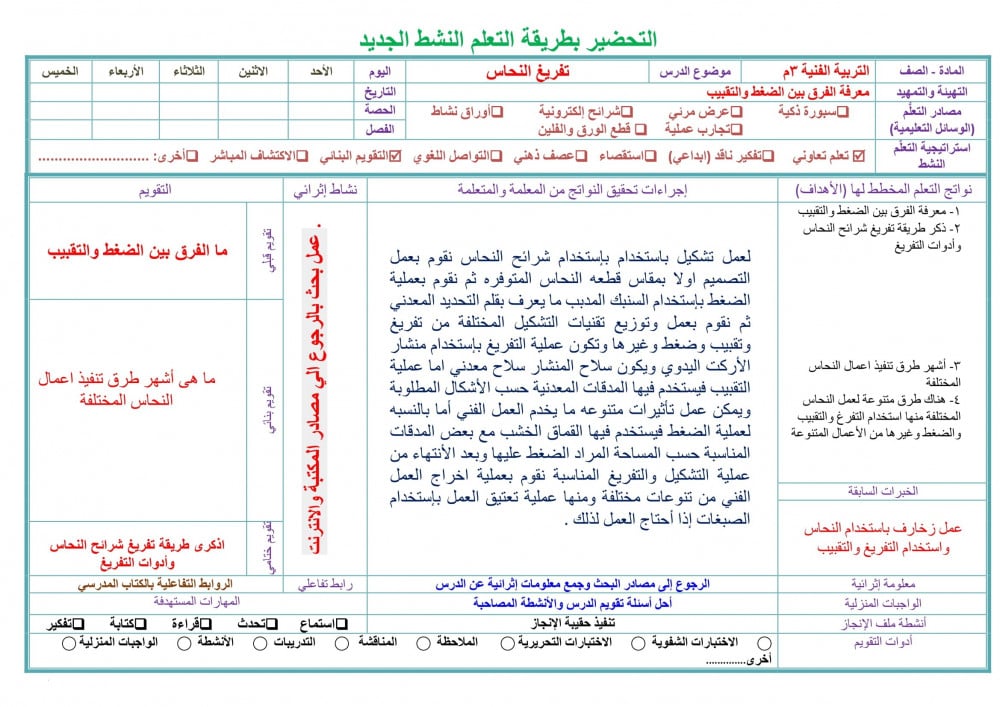 التحضير بطريقة التعلم النشط الجديد
المادة - الصف
التربية الفنية ٣م
موضوع الدرس
تفريغ النحاس
اليوم
الأحد
الاثنين
الثلاثاء
الأربعاء
الخميس
التهيئة والتمهيد
معرفة الفرق بين الضغط والتقبيب
التاريخ
مصادر التعلّم
(الوسائل التعليمية)
❑سبورة ذكية ❑عرض مرئي ❑شرائح إلكترونية ❑أوراق نشاط
❑تجارب عملية ❑ قطع الورق والفلين
الحصة
الفصل
استراتيجية التعلّم
النشط
☑ تعلم تعاوني ❑تفكير ناقد (ابداعي) ❑استقصاء ❑عصف ذهني ❑التواصل اللغوي ☑التقويم البنائي ❑الاكتشاف المباشر ❑أخرى: ...........................
نواتج التعلم المخطط لها (الأهداف)
إجراءات تحقيق النواتج من المعلمة والمتعلمة
نشاط إثرائي
التقويم
١- معرفة الفرق بين الضغط والتقبيب
٢- ذكر طريقة تفريغ شرائح النحاس
وأدوات التفريغ
٣- أشهر طرق تنفيذ اعمال النحاس
المختلفة
٤- هناك طرق متنوعة لعمل النحاس
المختلفة منها استخدام التفرغ والتقبيب
والضغط وغيرها من الأعمال المتنوعة
الخبرات السابقة
عمل زخارف باستخدام النحاس
واستخدام التفريغ والتقبيب
لعمل تشكيل باستخدام بإستخدام شرائح النحاس نقوم بعمل
التصميم اولا بمقاس قطعه النحاس المتوفره ثم نقوم بعملية
الضغط بإستخدام السنبك المدبب ما يعرف بقلم التحديد المعدني
ثم نقوم بعمل وتوزيع تقنيات التشكيل المختلفة من تفريغ
وتقبيب وضغط وغيرها وتكون عملية التفريغ بإستخدام منشار
الأركت اليدوي ويكون سلاح المنشار سلاح معدني اما عملية
التقبيب فيستخدم فيها المدقات المعدنية حسب الأشكال المطلوبة
ويمكن عمل تأثيرات متنوعه ما يخدم العمل الفني أما بالنسبه
لعملية الضغط فيستخدم فيها القماق الخشب مع بعض المدقات
المناسبة حسب المساحة المراد الضغط عليها وبعد الأنتهاء من
عملية التشكيل والتفريغ المناسبة نقوم بعملية اخراج العمل
الفني من تنوعات مختلفة ومنها عملية تعتيق العمل بإستخدام
الصبغات إذا أحتاج العمل لذلك .
. عمل بحث بالرجوع الي مصادر المكتبة والانترنت
تقويم قبلي
ما الفرق بين الضغط والتقبيب
تقويم بنائي
ما هى أشهر طرق تنفيذ اعمال
النحاس المختلفة
تقويم ختامي
اذكرى طريقة تفريغ شرائح النحاس
وأدوات التفريغ
معلومة إثرائية
الرجوع إلى مصادر البحث وجمع معلومات إثرائية عن الدرس
رابط تفاعلي
الروابط التفاعلية بالكتاب المدرسي
الواجبات المنزلية
أحل أسئلة تقويم الدرس والأنشطة المصاحبة
المهارات المستهدفة
أنشطة ملف الإنجاز
تنفيذ حقيبة الإنجاز
❑استماع ❑تحدث ❑قراءة ❑كتابة ❑تفكير
أدوات التقويم
◯ الاختبارات الشفوية ◯ الاختبارات التحريرية ◯ الملاحظة ◯ المناقشة ◯ التدريبات ◯ الأنشطة ◯ الواجبات المنزلية ◯
أخرى...............